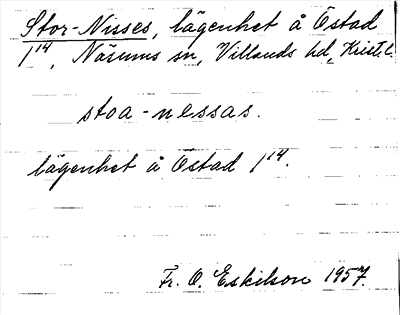 Stor-Nisses, lägenhet å Östad
1¹⁴, Näsums sn, Villands hd, Krist. l.
stoa-nessas.
lägenhet å Östad 1¹⁴.
Fr. O. Eskilson 1957.